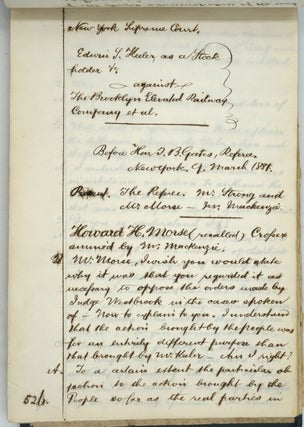 New York Supreme Court.
Edwin S. Keeler as a Stock
holder &c.
against
The Brooklyn Elevated Railway
Company et al.
Before Hon T. B. Gates, Referee.
New York, 9. March 1881.
Present. The Referee. Mr Strong and
Mr Morse — Mr Mackenzie.
Howard H. Morse (recalled) Crossex
amined by Mr. Mackenzie.
Q Mr. Morse, I wish you would state
why it was that you regarded it as
necessary to oppose the orders made by
Judge Westbrook in the case spoken
of — Now to explain to you. I understand
that the action brought by the people was
for an entirely different purpose than
that brought by Mr. Keeler — Am I right?
A. To a certain extent the particular ob
jection to the action brought by the
526. People so far as the real parties in